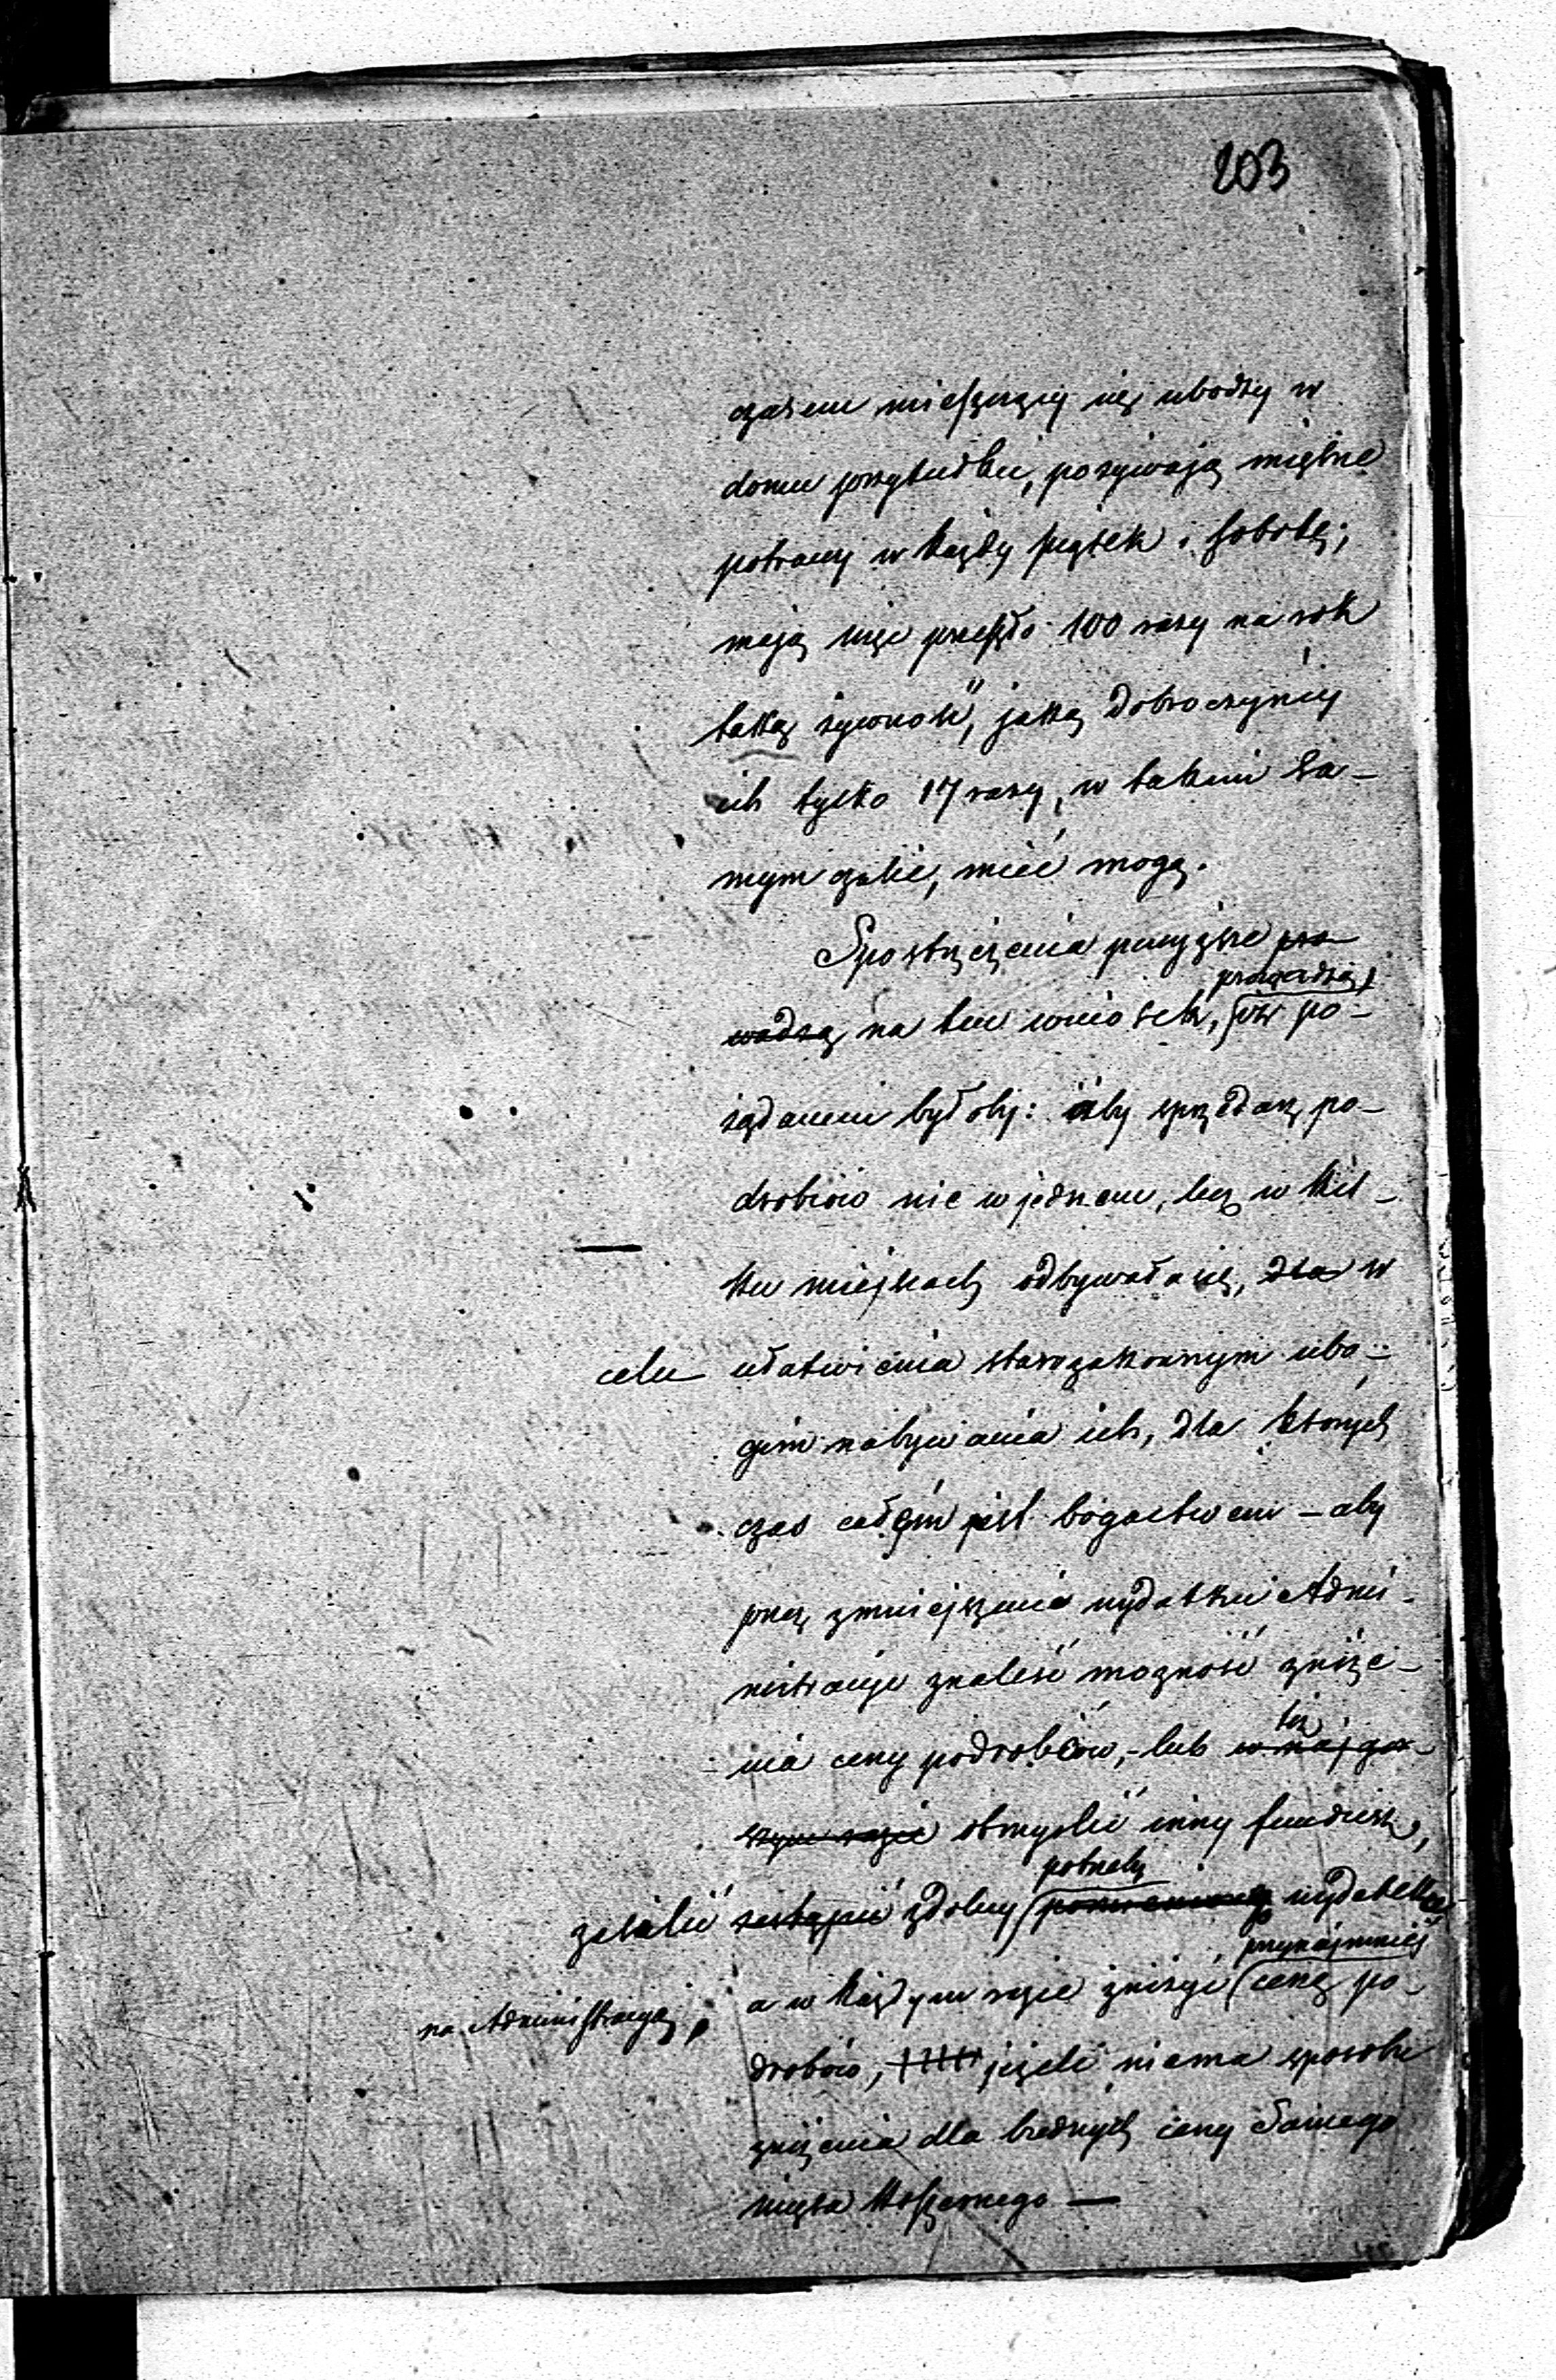 203
czasem mieszczący się ubodzy w
domu przytułku, pożywają mięsne
potrawy w każdy piątek i sobotę;
mają więc przeszło 100 razy na rok
taką żywność, jaką dobroczyńcy
ich tylko 17 razy, w takim sa-
mym czasie, mieć mogą.
Spostrzeżenia powyższe pro-
prowadzą,
wadzą na ten wniosek, iż po-
żądanem byłoby: aby sprzedaż po-
drobiów nie w jednem, lecz w kil-
ku miejscach odbywała się, dla w
celu ułatwienia starozakonnym ubo-
gim nabywania ich, dla których
czas całym jest bogactwem – aby
przez zmniejszenie wydatku Admi-
nistracyi znaleść możność zniże-
nia ceny podrobiów, – lub w naj gor-
też
szym razie obmyślić inny fundusz,
potrzeby
zasilić zastąpić zdolny wydatków
przynajmniej
na Administracyą, a w każdym razie zniżyć cenę po-
drobiów, jeżeli niema sposobu
zniżenia dla biednych ceny samego
mięsa koszernego —